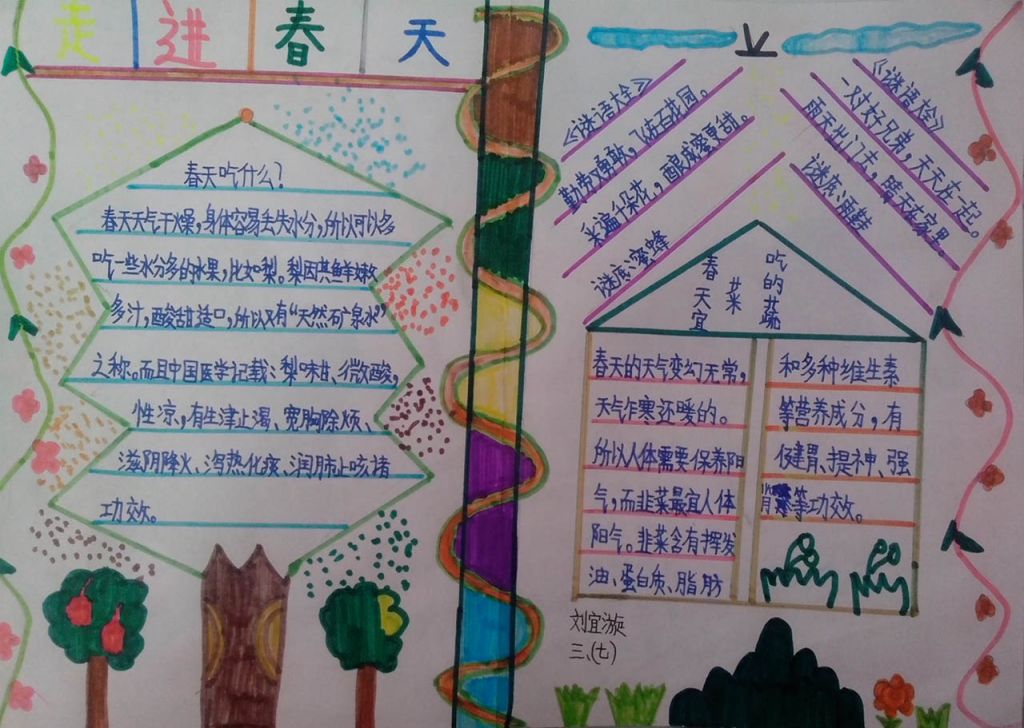 走进春天
春天吃什么?
春天天气干燥,身体容易丢失水分,所以可以多
吃一些水分多的水果,比如梨。梨因其鲜嫩
多汁,酸甜适口,所以又有“天然矿泉水”
之称。而且中国医学记载:梨味甘、微酸,
性凉,有生津止渴、宽胸除烦、
滋阴降火、泻热化痰、润肺止咳诸
功效。
《谜语大全》
勤劳又勇敢,飞访百花园。
采遍千朵花,酿成蜜更甜。
谜底:蜜蜂
《谜语大全》
一对好兄弟,天天在一起。
雨天出门去,晴天在家里。
谜底:雨鞋
春天宜
菜
吃的蔬
春天的天气变幻无常,
天气乍寒还暖的。
所以人体需要保养阳
气,而韭菜最宜人体
阳气。韭菜含有挥发
油、蛋白质、脂肪
和多种维生素
等营养成分,有
健胃、提神、强
等功效。
刘宜漩
三、(七)